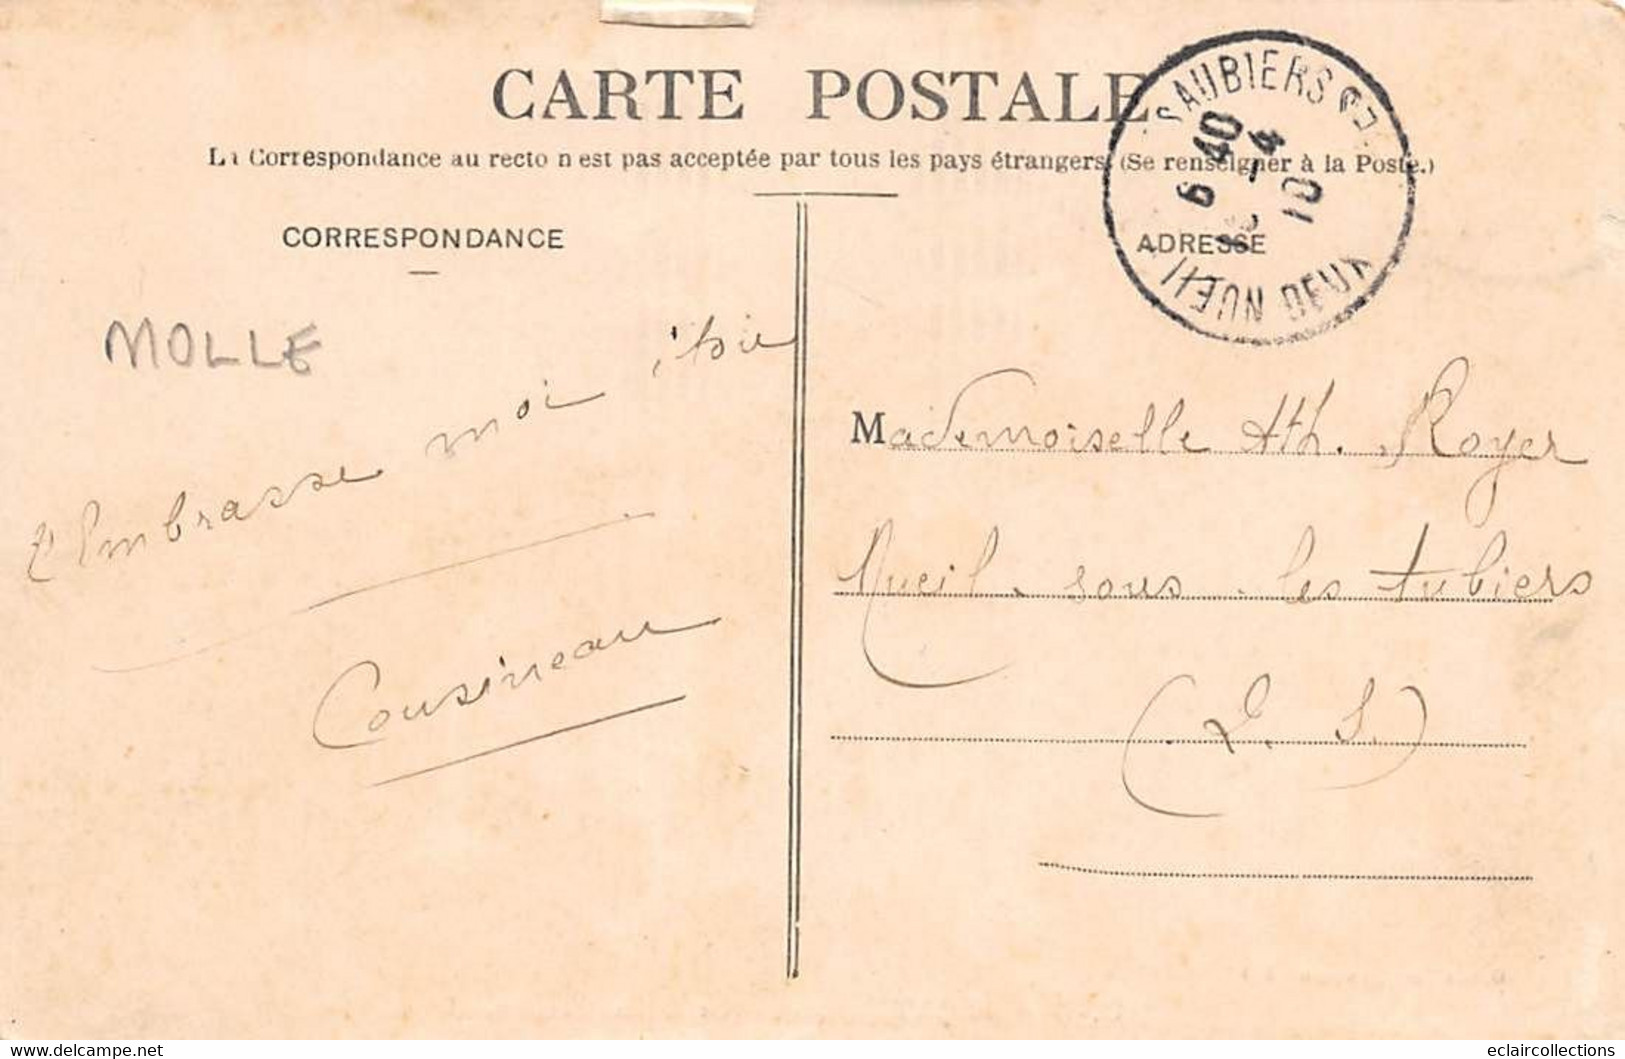 CARTE POSTALE
La Correspondance au recto n'est pas acceptée par tous les pays étrangers (Se renseigner à la Poste.)
CORRESPONDANCE
ADRESSE
AUBIERS
6 40
-4
10
DEUX
MOLLE
Embrasse moi
Cousineau
Mademoiselle Ath. Royer
Nueil sous les Aubiers
(D. S.)
eclaircollections